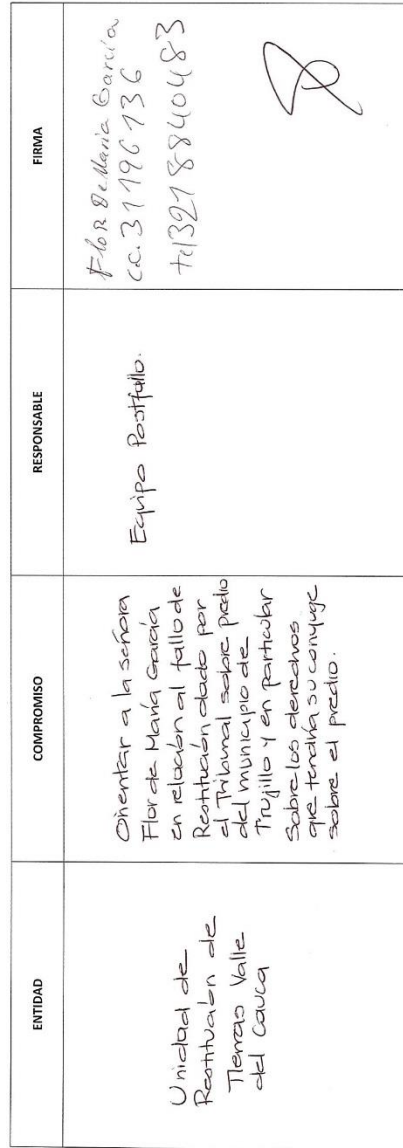 ENTIDAD
COMPROMISO
RESPONSABLE
FIRMA
Unidad de
Restitución de
Tierras Valle
del Cauca
Orientar a la señora
Flor de María García
en relación al fallo de
Restitución dado por
el Tribunal sobre predio
del municipio de
Trujillo y en particular
Sobre los derechos
que tendría su conyuge
sobre el predio.
Equipo Postfallo.
Flor De Maria Garcia
cc. 31196136
tel 3218840483